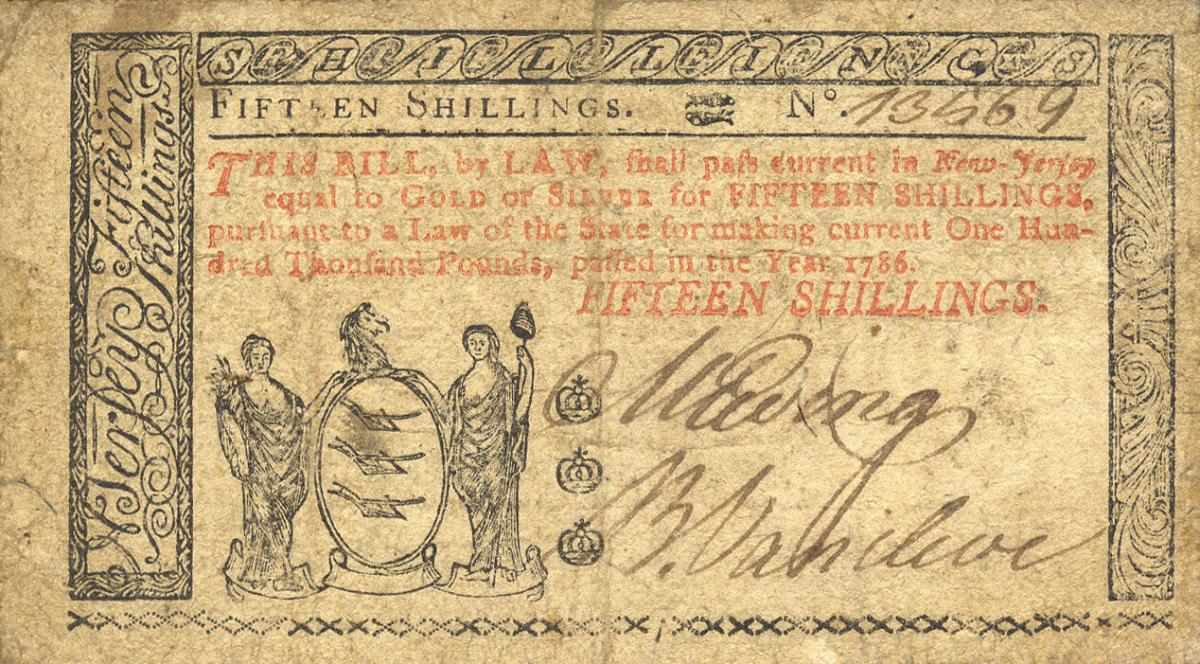 SHILLINGS
FIFTEEN SHILLINGS. Nº. 13569
THIS BILL, by LAW, ſhall paſs current in New-Jerſey
equal to GOLD or SILVER for FIFTEEN SHILLINGS,
purſuant to a Law of the State for making current One Hun-
dred Thouſand Pounds, paſſed in the Year 1786.
FIFTEEN SHILLINGS.
N Jerſey Fifteen
Shillings